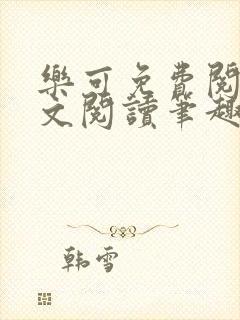 樂可免費閱
文閱讀筆趣
韩雪